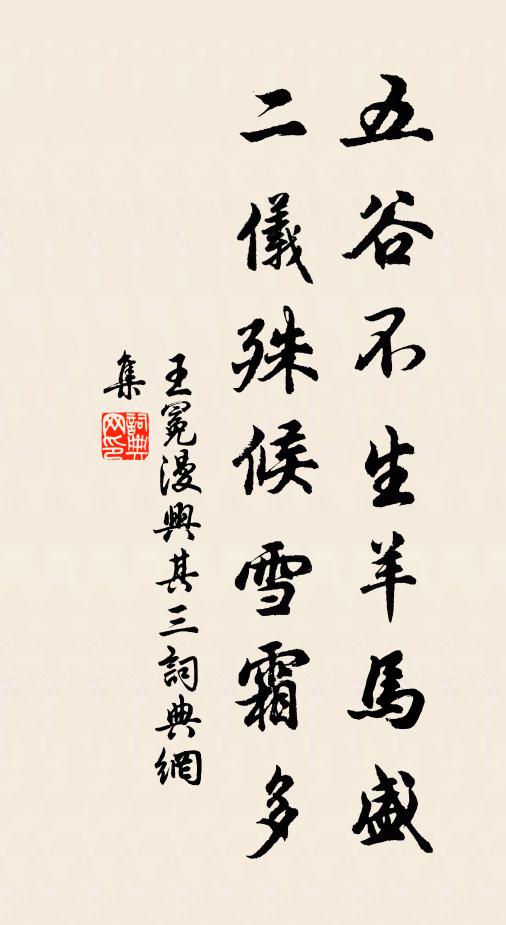 五谷不生羊馬盛
二儀殊候雪霜多
王冕漫興其三詞典網
集
詞典网印